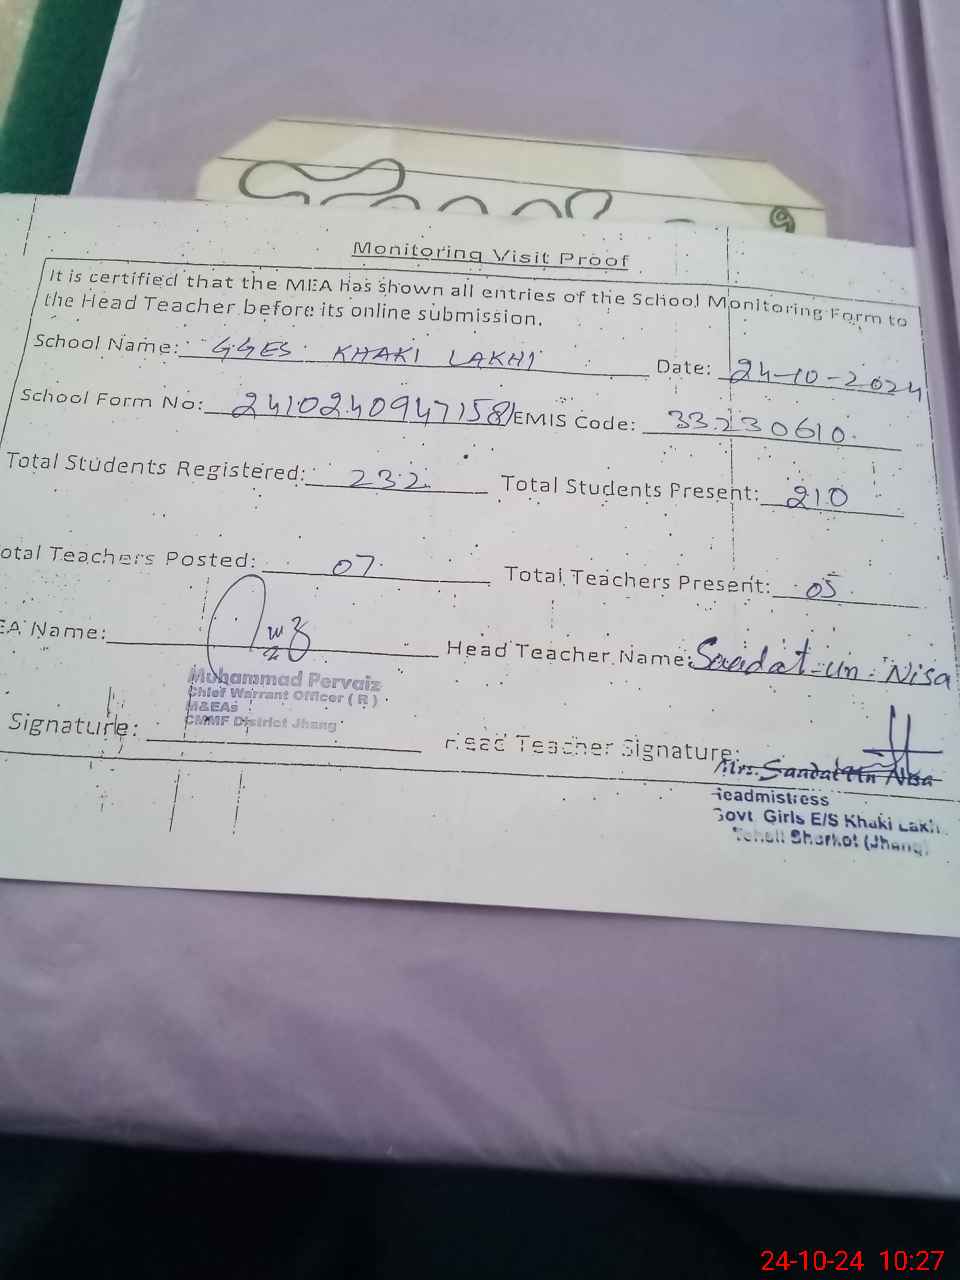 Monitoring Visit Proof
It is certified that the MEA has shown all entries of the School Monitoring Form to
the Head Teacher before its online submission.
School Name: GGES KHAKI LAKHI Date: 24-10-2024
School Form No: 2410240947158 EMIS Code: 33230610
Total Students Registered: 232 Total Students Present: 210
otal Teachers Posted: 07 Total Teachers Present: 05
EA Name: Head Teacher Name: Saadat-un-Nisa
Muhammad Pervaiz
Chief Warrant Officer (R)
M&EAs
CMMF District Jhang
Signature: Head Teacher Signature:
Mrs. Saadat Un Nisa
Headmistress
Govt Girls E/S Khaki Lakhi
Tehsil Shorkot (Jhang)
24-10-24 10:27